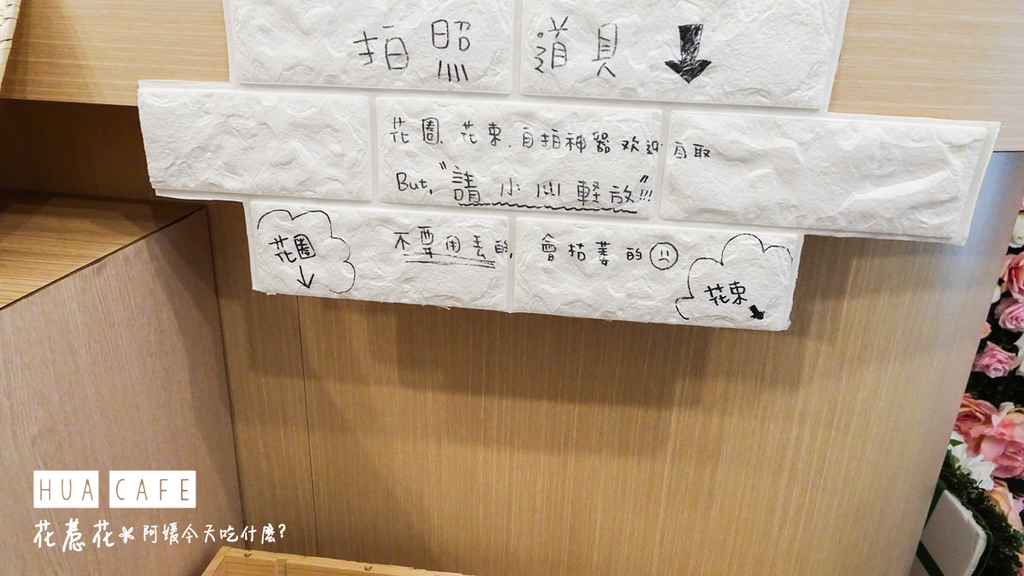 拍照 道具 ↓
花圈、花束、自拍神器欢迎自取
But, "請小心輕放"!!!
花圈 ↓
不要用丟的, 會枯萎的
花束
HUA CAFE
花惹花 阿嬛今天吃什麼?